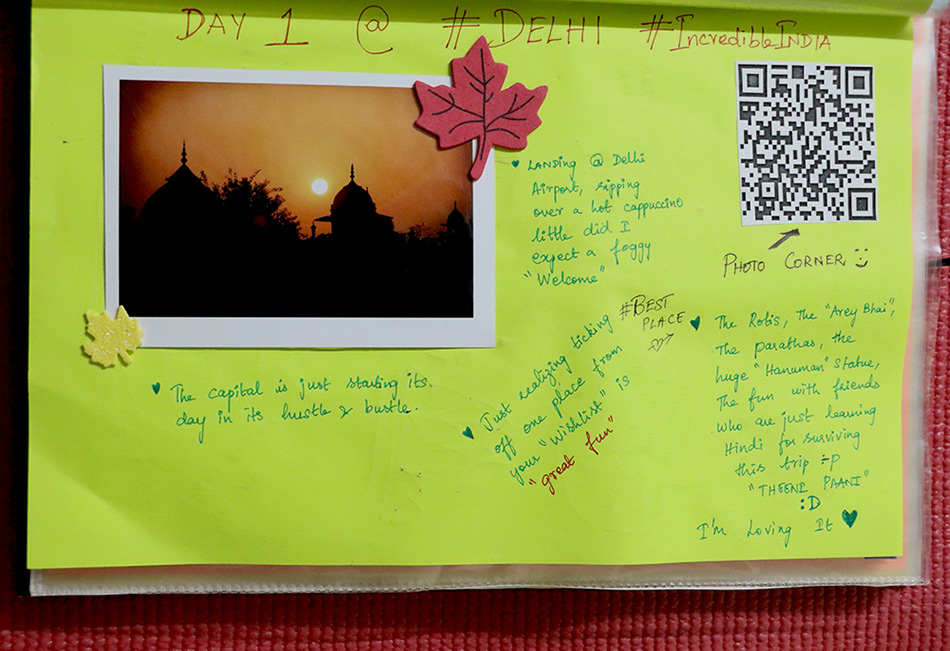 DAY 1 @ #DELHI #IncredibleINDIA
♥ Landing @ Delhi
Airport, sipping
over a hot cappuccino
little did I
expect a foggy
"Welcome"
PHOTO CORNER :)
The capital is just starting its
day in its hustle & bustle.
Just realizing ticking
off one place from
your "wishlist" is
"great fun"
#BEST
PLACE
The Rotis, The "Arey Bhai",
The parathas, the
huge "Hanuman" Statue,
The fun with friends
who are just learning
Hindi for surviving
this trip :-p
"THEENI PAANI"
:D
I'm Loving It ♥